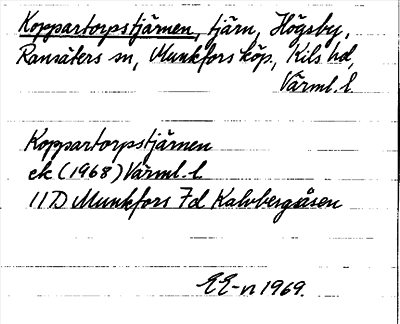 Koppartorpstjärnen, tjärn, Högsby,
Ransäters sn, Munkfors köp, Kils hd,
Värml. l.
Koppartorpstjärnen
ek (1968) Värml. l
11D Munkfors 7d Kalvbergsåsen
EE-n 1969.